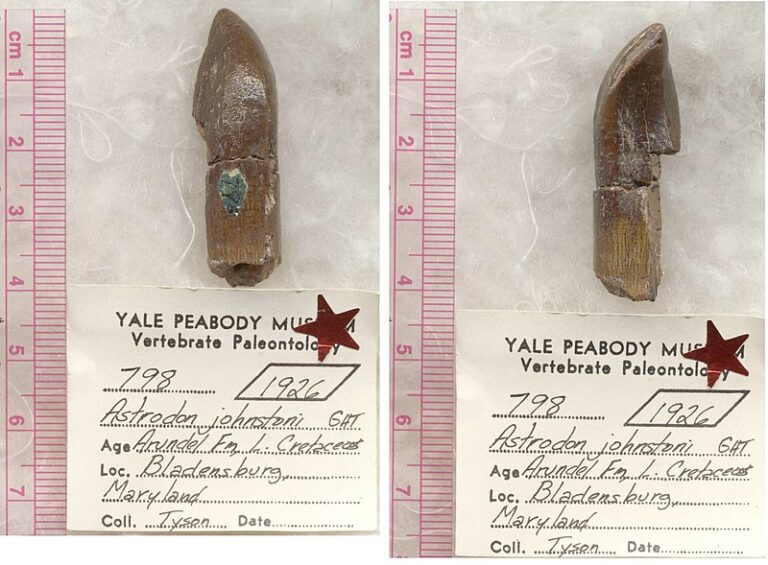 cm 1
2
3
4
5
6
7
YALE PEABODY MUS M
Vertebrate Paleontology
798 1926
Astrodon johnstoni GHT
Age Arundel Fm, L. Cretaceous
Loc. Bladensburg,
Maryland
Coll. Tyson Date
cm 1
2
3
4
5
6
7
YALE PEABODY MUS M
Vertebrate Paleontology
798 1926
Astrodon johnstoni GHT
Age Arundel Fm, L. Cretaceous
Loc. Bladensburg,
Maryland
Coll. Tyson Date